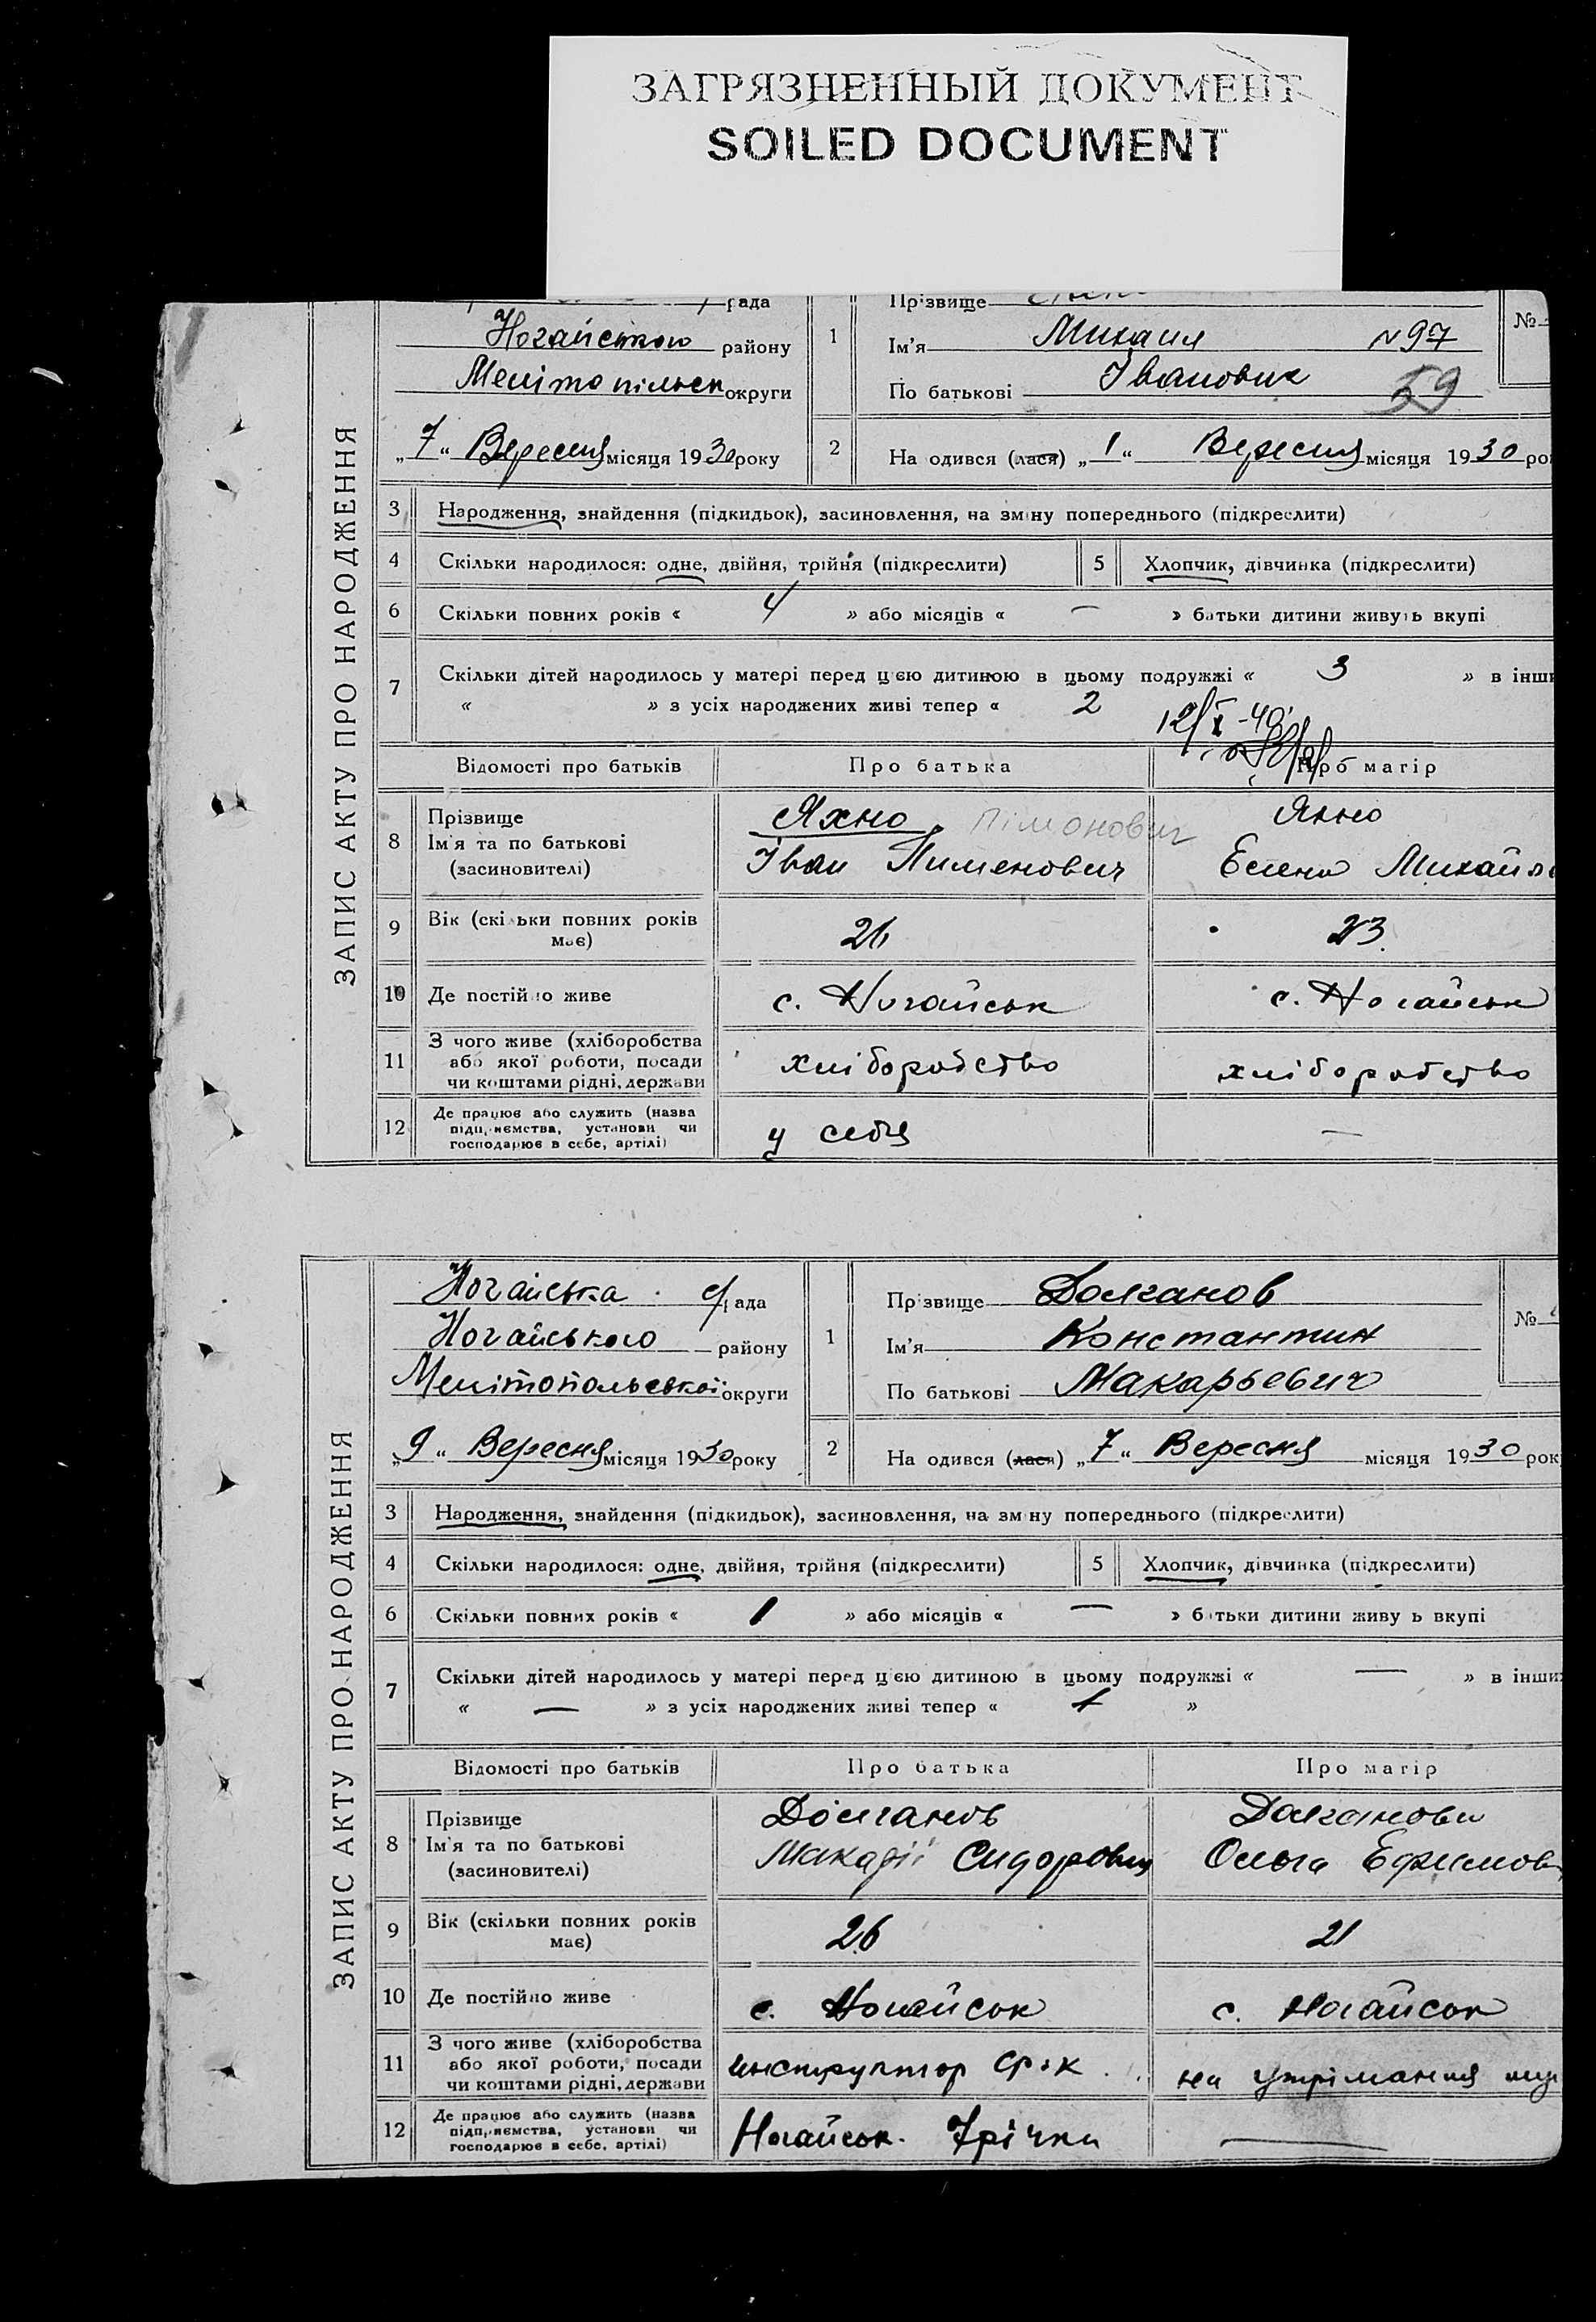 ЗАГРЯЗНЕННЫЙ ДОКУМЕНТ
SOILED DOCUMENT
ЗАПИС АКТУ ПРО НАРОДЖЕННЯ
рада
Ногайського району
Мелітопільск округи
„7“ Вересня місяця 1930 року
1
Прізвище
Ім'я Михаил N 97
По батькові Івановик 59
№
2
На одився (лася) „1“ Вересня місяця 1930 ро
3 Народження, знайдення (підкидьок), засиновлення, на зміну попереднього (підкреслити)
4 Скільки народилося: одне, двійня, трійня (підкреслити) 5 Хлопчик, дівчинка (підкреслити)
6 Скільки повних років « 4 » або місяців « — » батьки дитини живуть вкупі
7 Скільки дітей народилось у матері перед цією дитиною в цьому подружжі « 3 » в інши
« » з усіх народжених живі тепер « 2
12/X-40
Відомості про батьків Про батька Про матір
8 Прізвище
Ім'я та по батькові
(засиновителі)
Яхно Пімонович
Іван Пименович
Яхно
Елена Михайл
9 Вік (скільки повних років має) 26 23.
10 Де постійно живе с. Ногайськ с. Ногайськ
11 З чого живе (хліборобства
або якої роботи, посади
чи коштами рідні, держави
хліборобство хліборобство
12 Де працює або служить (назва
підприємства, установи чи
господарює в себе, артілі)
у себя —
ЗАПИС АКТУ ПРО НАРОДЖЕННЯ
Ногайська с/рада
Ногайського району
Мелітопольської округи
„9“ Вересня місяця 1930 року
1
Прізвище Долганов
Ім'я Константин
По батькові Макарьевич
№
2
На одився (лася) „7“ Вересня місяця 1930 рок
3 Народження, знайдення (підкидьок), засиновлення, на зміну попереднього (підкреслити)
4 Скільки народилося: одне, двійня, трійня (підкреслити) 5 Хлопчик, дівчинка (підкреслити)
6 Скільки повних років « 1 » або місяців « — » батьки дитини живу ь вкупі
7 Скільки дітей народилось у матері перед цією дитиною в цьому подружжі « — » в інши
« — » з усіх народжених живі тепер « »
Відомості про батьків Про батька Про матір
8 Прізвище
Ім'я та по батькові
(засиновителі)
Долганов
Сидорович
Долганова
Ольга Ефимов
9 Вік (скільки повних років має) 26 21
10 Де постійно живе с. Ногайськ с. Ногайськ
11 З чого живе (хліборобства
або якої роботи, посади
чи коштами рідні, держави
инструктор
на утрімання
12 Де працює або служить (назва
підприємства, установи чи
господарює в себе, артілі)
Ногайськ. —